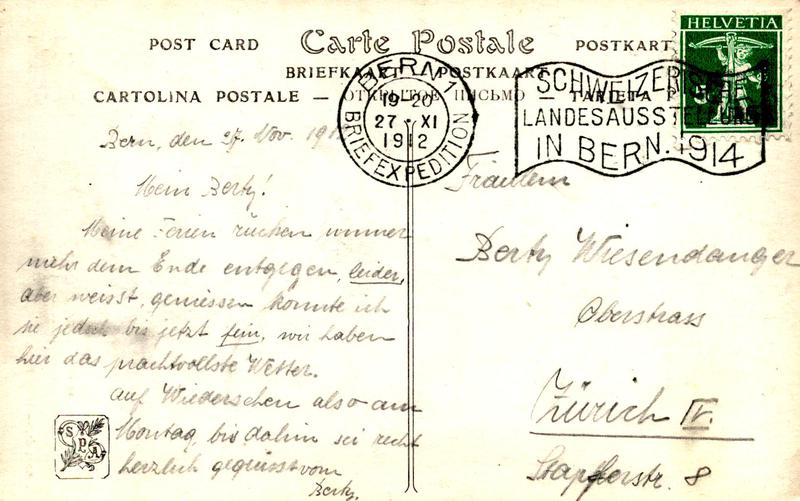 POST CARD Carte Postale POSTKART
BRIEFKAART POSTKAART
CARTOLINA POSTALE — ОТКРЫТОЕ ПИСЬМО — TARJETA P
HELVETIA
BERN 1
19-20
27·XI
1912
BRIEFEXPEDITION
SCHWEIZERISCHE
LANDESAUSSTELLUNG
IN BERN. 1914
Bern, den 27. Nov. 191
Mein Berty!
Meine Ferien rücken immer
mehr dem Ende entgegen, leider,
aber weisst, geniessen konnte ich
sie jedoch bis jetzt fein, wir haben
hier das prachtvollste Wetter.
Auf Wiedersehen also am
Montag, bis dahin sei recht
herzlich gegrüsst vom
Berty.
SPA
Fräulein
Berty Wiesendanger
Oberstrass
Zürich IV.
Stapferstr. 8